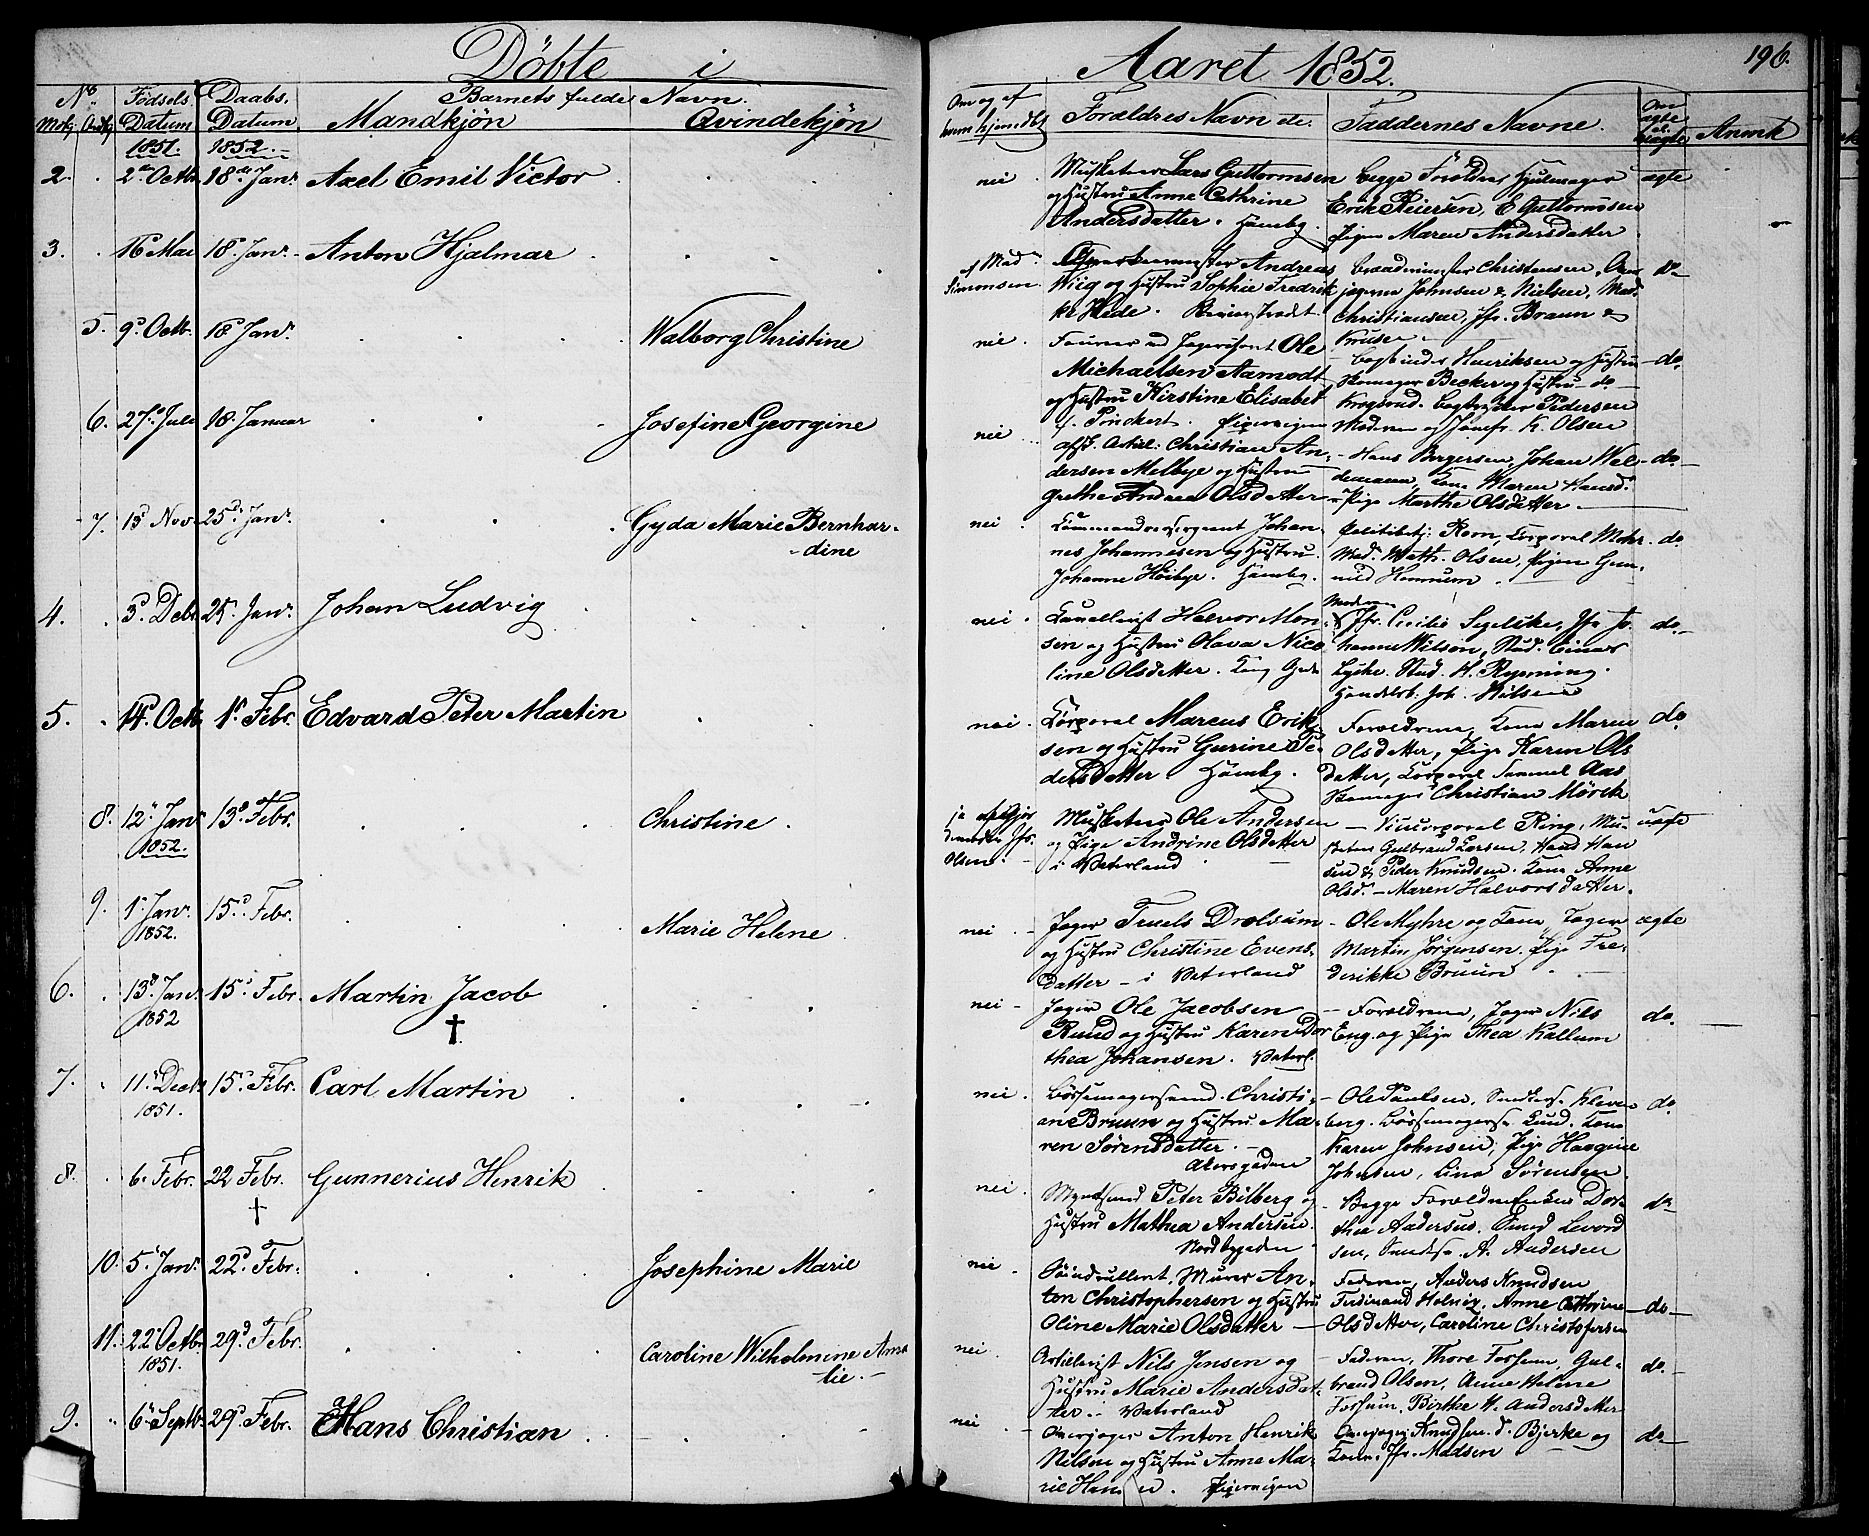 Döbte i Aaret 1852.
196.
No. Fødsels Daabs. Barnets fulde Navn.
Mokj. Qvkj. Datum Datum Mandkjøn Qvindekjøn
Om og af hvem hjemdøbt Forældres Navn etc. Faddernes Navne. Om ægte el. uægte Anmk
1851. 1852.
2. 2den Octbr 18de Janr. Axel Emil Victor
nei Musketeer Lars Guttormsen
og Hustru Anne Cathrine
Andersdatter. Homsbg.
begge Forældre Hjulmager
Erik Reiersen, E Guttormsen
Pigen Maren Andersdatter
ægte
3. 16 Mai 18d. Janr. Anton Hjalmar
af Mad. Simonsen
Andreas
Wiig og Hustru Sophie Fredrik
ke Hede.
Christensen,
jægerne Johnsen & Nielsen, Mad.
Christiansen, Jfr. Braun &
Kruse
do
5. 9d Octb. 18d Janr. Walborg Christine
nei. Ole
Michaelsen Aamodt
og Hustru Kirstine Elisabet
f. Ponckert. Pipervigen
Bogbinder Henriksen og Hustru
Becker og Hustru
Krogsrud. Bogbinder Pedersen
Moderen og Jomfr. K. Olsen
do.
6. 27d Juli 18. Januar Josefine Georgine
nei afsk. Artil: Christian An-
dersen Melbye og Hustru
Grethe Andrea Olsdatter
Hans Borgersen, Johan Wal-
demann, Kone Maren Hansd.
Pige Marthe Olsdatter
do
7. 13d Nov. 25d Janr. Gyda Marie Bernhar-
dine
nei Commandeersergeant Johan-
nes Johannesen og Hustru
Johanne Höibye. Homsbg.
Politibetj. Rom, Corporal Mohr
Mad. Math. Olsen, Pigen Gun-
hild Hennum
do
4. 3d Debr. 25d. Janr. Johan Ludvig
nei. Cavallerist Halvor Mon-
sen og Hustru Olava Nico
line Olsdatter. Kong Gade
Moderen
Jfr. Cecilie Segelcke, Jfr. Jo-
hanne Wilson, Stud. Einar
Lycke. Stud. H. Rynning.
Handelsb. Joh. Nilsen
do.
5. 14d. Octb. 1d. Febr. Edvard Peter Martin
nei. Corporal Marcus Erik
sen og Hustru Gurine Pe-
dersdatter Homsbg.
Forældrene, Kone Maren
Olsdatter, Pige Karen Ols
datter, Corporal Samuel Aas
Christian Mörck
do
8. 12d Janr 1852. 13d Febr. Christine.
ja af Gjor
demoder Jfr.
Olsen.
Musketeer Ole Andersen
og Pige Andrine Olsdatter
i Vaterland
Vicecorporal Ring, Mu-
sketeer Gulbrand Larsen, Hans Han
sen & Peder Knudsen. Kone Anne
Olsd. – Maren Halvorsdatter.
uægte
9. 1d. Janr. 1852. 15d. Febr. Marie Helene
nei Jæger Truels Drolsum
og Hustru Christine Evens-
datter – i Vaterland
Ole Myhre og Kone, Jæger
Martin Jörgensen, Pige Fre-
derikke Bruun
ægte
6. 13d Janr. 1852 15d. Febr. Martin Jacob
†
nei – Jæger Ole Jacobsen
Ruud og Hustru Karen Dor
thea Johansen. Vaterl.
Forældrene, Jæger Nils
Eng. og Pige Thea Kallum
do.
7. 11d. Decb. 1851. 15d. Febr. Carl Martin
nei. Bössemagersvend. Christi-
an Bruun og Hustru Ma-
ren Sörensdatter.
Akersgaden
Ole Paulsen, Snedkers. Kleven
berg. Bössemagers. Lund. Kone
Karen Johnsen, Pige Haagine
Johnsen, Lina Sörensen
do
8. 6. Febr. 22 Febr. Gunnerius Henrik
†
nei. Peter Bilberg og
Hustru Mathea Andersen.
Nordbygaden
Begge Forældre Enken Dor-
thea Andersen, Levord
sen, A. Andersen
do
10. 5d Janr. 22d. Febr. Josephine Marie
nei. Murer An-
ton Christophersen og Hustru
Oline Marie Olsdatter
Faderen, Anders Knudsen
Ferdinand Holvig, Anne Cathrine
Olsdatter, Caroline Christofersen
do
11. 22d Octbr 1851. 29d Febr. Caroline Wilhelmine Ama
lie.
nei. Artillerist Nils Jensen og
Hustru Marie Andersdat-
ter. Vaterland
Faderen, Thore Fossum, Gul-
brand Olsen, Anne Helene
Fossum, Birthe M. Andersdatter
do.
9. 6d Septbr. 29d. Febr. Hans Christian
nei Overjæger Anton Henrik
Nilsen og Hustru Anne Ma-
rie Hansen. Pipervigen
Overjæger Knudsen. d. Bjerke og
Kone. Jfr. Madsen
do